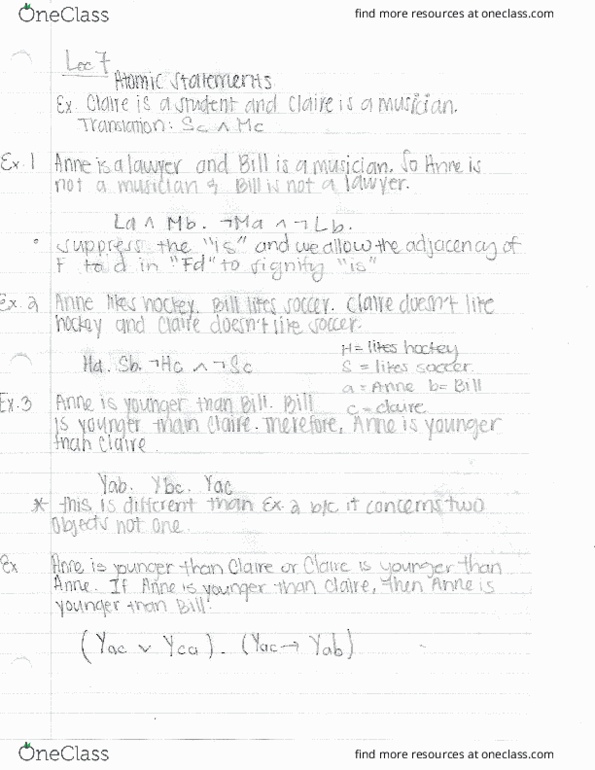 OneClass
find more resources at oneclass.com
Lec 7
Atomic Statements
Ex. Claire is a student and Claire is a musician.
Translation: Sc ∧ Mc
Ex.1 Anne is a lawyer and Bill is a musician. So Anne is
not a musician & Bill is not a lawyer.
La ∧ Mb. ¬Ma ∧ ¬Lb.
suppress the "is" and we allow the adjacency of
F to d in "Fd" to signify "is"
Ex.2 Anne likes hockey. Bill likes soccer. Claire doesn't like
hockey and Claire doesn't like soccer.
H = likes hockey
Ha. Sb. ¬Hc ∧ ¬Sc
S = likes soccer
a = Anne b = Bill
c = claire
Ex.3 Anne is younger than Bill. Bill
is younger than Claire. Therefore, Anne is younger
than Claire
Yab. Ybc. Yac
* this is different than Ex. 2 b/c it concerns two
objects not one
Ex Anne is younger than Claire or Claire is younger than
Anne. If Anne is younger than Claire, then Anne is
younger than Bill.
(Yac ∨ Yca). (Yac → Yab)
OneClass
find more resources at oneclass.com